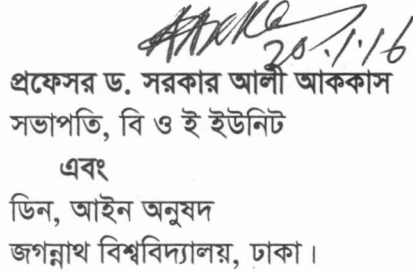 20.1.16
প্রফেসর ড. সরকার আলী আককাস
সভাপতি, বি ও ই ইউনিট
এবং
ডিন, আইন অনুষদ
জগন্নাথ বিশ্ববিদ্যালয়, ঢাকা।